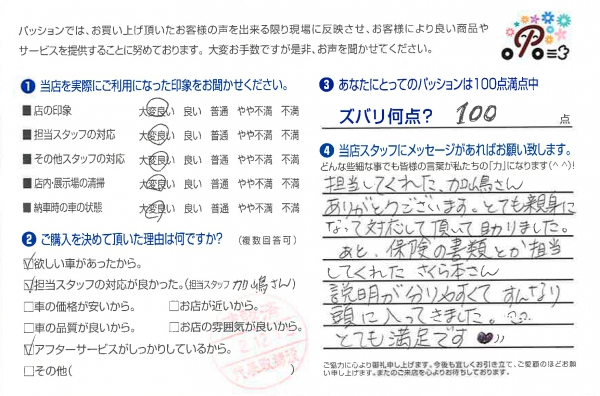 パッションでは、お買い上げ頂いたお客様の声を出来る限り現場に反映させ、お客様により良い商品や
サービスを提供することに努めております。大変お手数ですが是非、お声を聞かせてください。
❶ 当店を実際にご利用になった印象をお聞かせください。
■店の印象 大変良い 良い 普通 やや不満 不満
■担当スタッフの対応 大変良い 良い 普通 やや不満 不満
■その他スタッフの対応 大変良い 良い 普通 やや不満 不満
■店内・展示場の清掃 大変良い 良い 普通 やや不満 不満
■納車時の車の状態 大変良い 良い 普通 やや不満 不満
❷ ご購入を決めて頂いた理由は何ですか? (複数回答可)
☑欲しい車があったから。
☑担当スタッフの対応が良かった。(担当スタッフ 加嶋さん)
□車の価格が安いから。 □お店が近いから。
□車の品質が良いから。 □お店の雰囲気が良いから。
☑アフターサービスがしっかりしているから。
□その他( )
❸ あなたにとってのパッションは100点満点中
ズバリ何点? 100 点
❹ 当店スタッフにメッセージがあればお願い致します。
どんな些細な事でも皆様の言葉が私たちの「力」になります(^^)!
担当してくれた、加嶋さん
ありがとうございます。とても親身に
なって対応して頂いて助りました。
あと、保険の書類とか担当
してくれた さくら本さん
説明が分りやすくて すんなり
頭に入ってきました。
とても満足です
ご協力に心より御礼申し上げます。今後も宜しくお引き立て、ご愛顧のほどお願
い申し上げます。またのご来店を心よりお待ちしております。